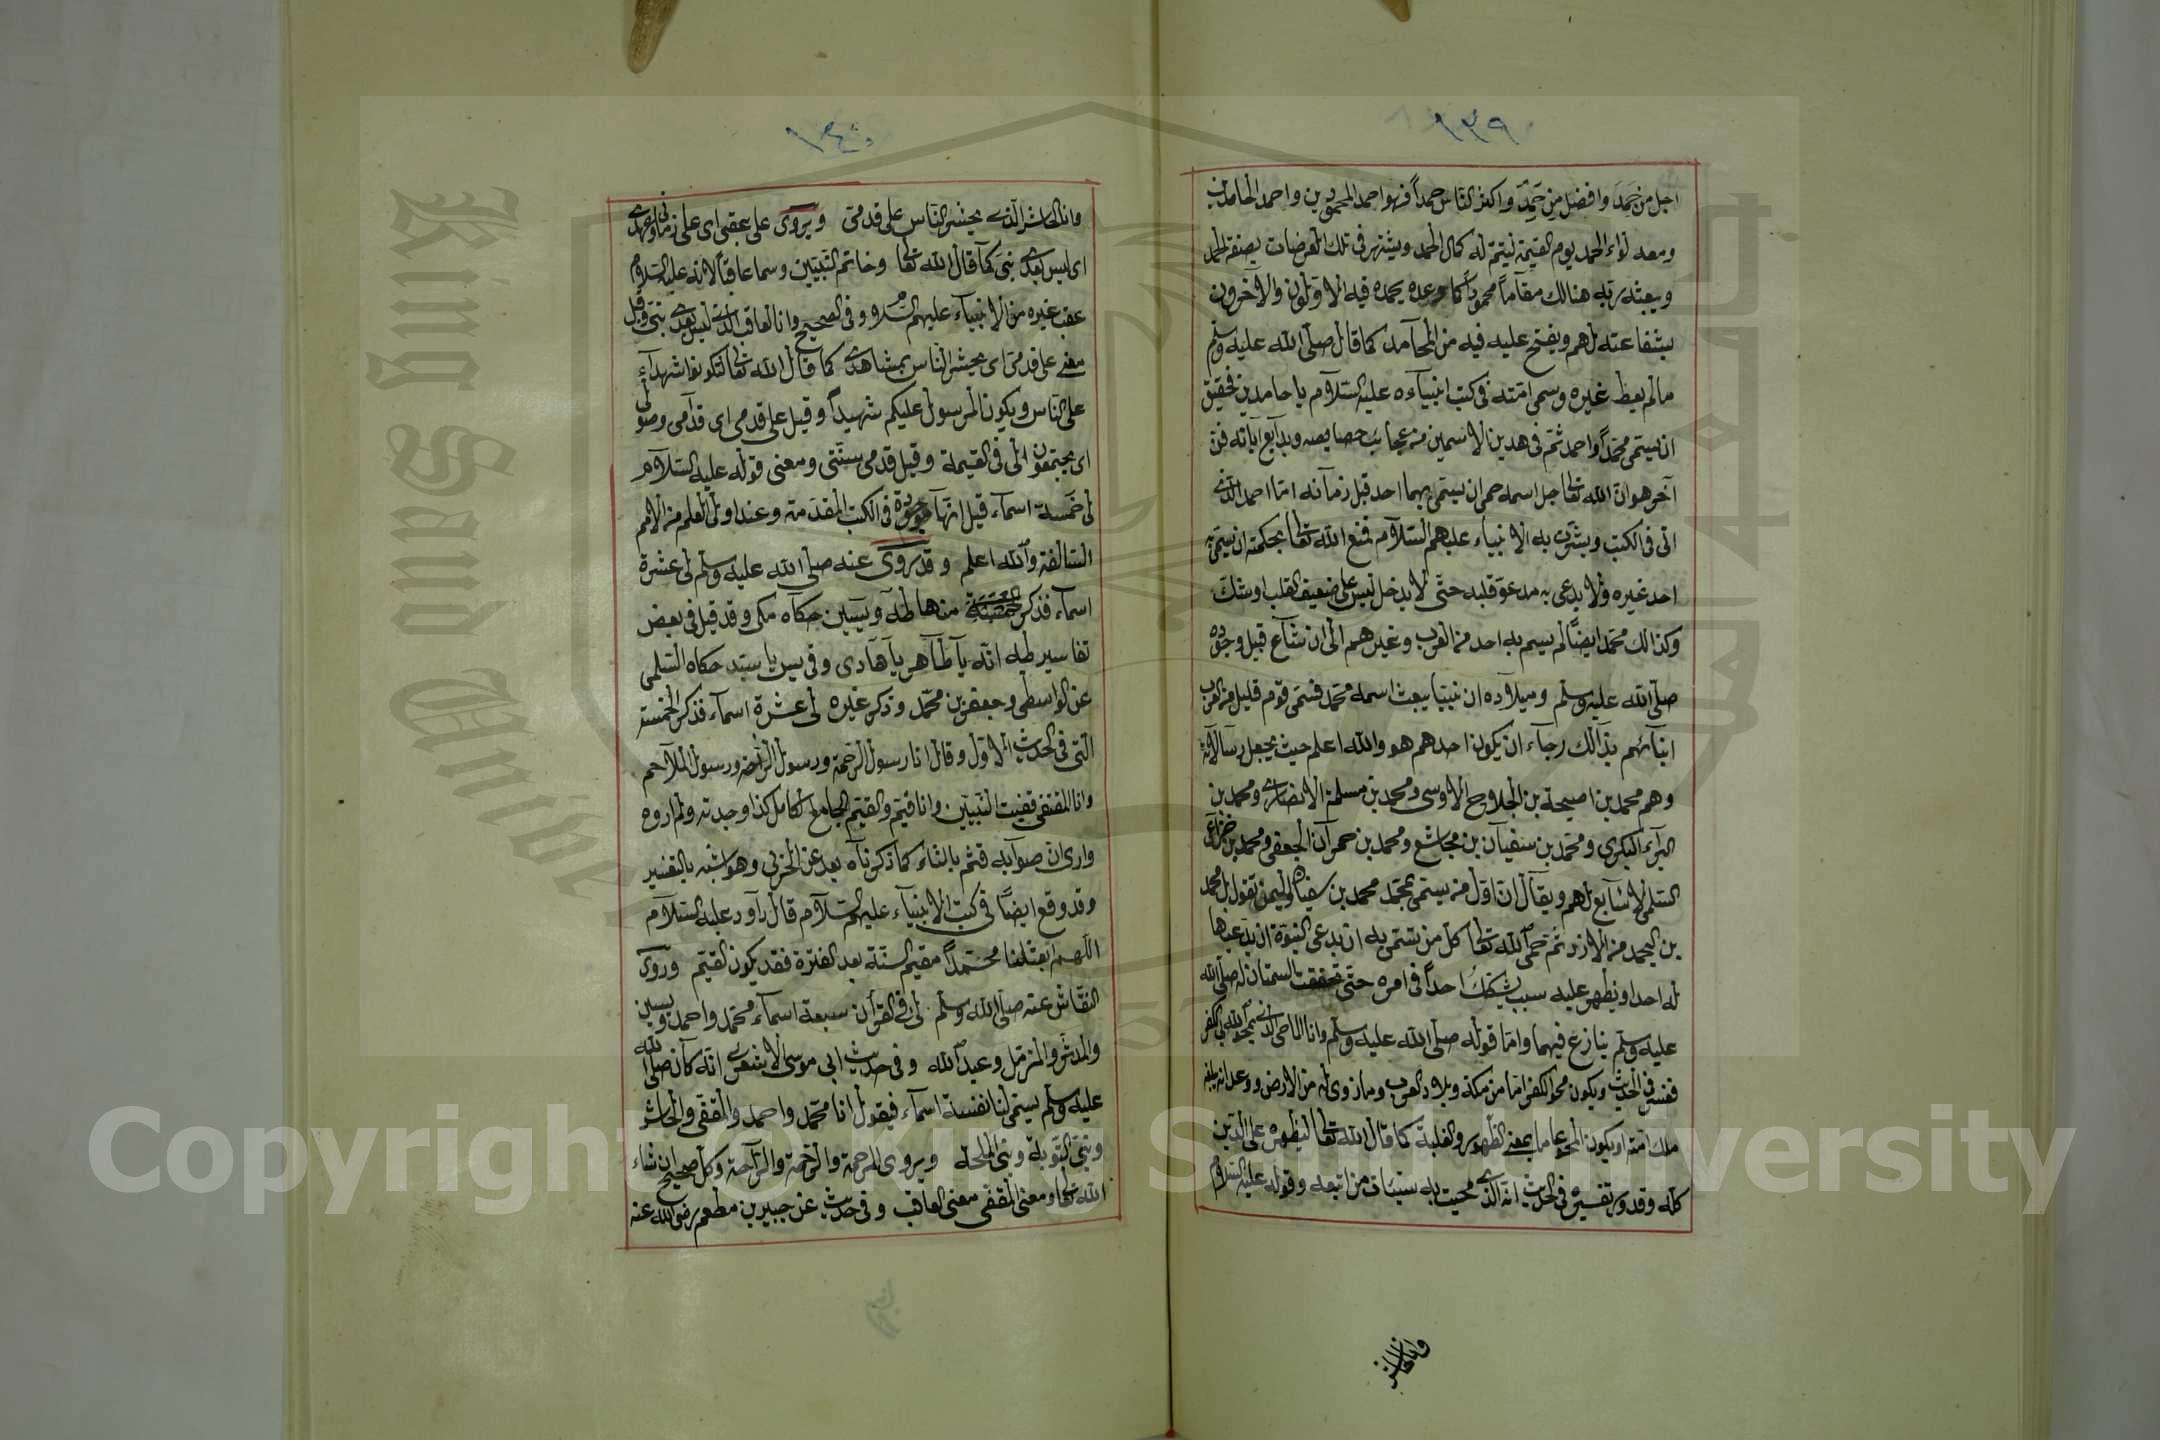 ١٣٩
اجل من حَمِدَ وافضل من حُمِدَ واكثر الناس حمداً فهو احمد المحمودين واحمد الحامدين
ومعه لواء الحمد يوم القيمة ليتم له كمال الحمد ويشتهر فى تلك العرضات بصفة الحمد
ويبعثه ربه هنالك مقاماً محموداً كما وعده يحمده فيه الاولون والآخرون
بشفاعته لهم ويفتح عليه فيه من المحآمد كما قال صلى الله عليه وسلم
مالم يعط غيره وسمى امته فى كتب انبيآءه عليه السلام با حامدين فحقيق
ان يسمى محمداً واحمد ثم فى هدين الاسمين من عجائب خصايصه وبدآيع آياته فن
آخر هو ان الله تعالى جل اسمه حمى ان يسمى بهما احد قبل زمآنه اما احمد الذى
اتى فى الكتب وبشرت به الانبياء عليهم السلام فمنع الله تعالى بحكمته ان يسمى به
احد غيره ولا يدعى به مدعو قبله حتى لا يدخل لبس على ضعيف القلب او شك
وكذالك محمد ايضاً لم يسم به احد من العرب وغيرهم الى ان شآع قبيل وجوده
صلى الله عليه وسلم وميلآده ان نبيا يبعث اسمه محمد فسمى قوم قليل من العرب
ابنآئهم بذآلك رجآء ان يكون احدهم هو والله اعلم حيث يجعل رسالاته
وهم محمد بن احيحة بن الجلاح الاوسى ومحمد بن مسلمة الانصارى ومحمد بن
البرآء البكرى ومحمد بن سفيآن بن مجاشع ومحمد بن حمرآن الجعفى ومحمد بن خزاعى
السلمى لا سآبع لهم ويقآل ان اول من يسمى بمحمد محمد بن سفيان واليمن تقول بل محمد
بن اليحمد من الازد ثم حمى الله تعالى كل من يسمى به ان يدعى النبوة ان يدعيها
له احد او يظهر عليه سبب يشكك احداً فى امره حتى تحققت السمتان له صلى الله
عليه وسلم ينازع فيهما واما قوله صلى الله عليه وسلم وانا الماحى الذى يمحو الله بى الكفر
ففسر فى الحديث ويكون محو الكفر اما من مكة وبلاد العرب وما زوى له من الارض ووعد انه يبلغه
ملك امته او يكون المحو عاما بمعنى الظهور والغلبة كما قال الله تعالى ليظهره على الدين
كله وقد ورد تفسيره فى الحديث انه الذى محيت به سيئات من اتبعه وقوله عليه السلام
وانا الحاشر
١٤٠
وانا الحاشر الذى يحشر الناس على قدمى ويروى على عقبى اى على زمانى وعهدى
اى ليس بعدى نبى كمآ قال الله تعالى وخاتم النبيين وسما عاقباً لانه عليه السلام
عقب غيره من الانبيآء عليهم السلام وفى الصحيح وانا العاقب الذى ليس بعدى نبى وقيل
معنى على قدمى اى يحشر الناس بمشاهدى كما قال الله تعالى لتكونوا شهدآء
على الناس ويكون الرسول عليكم شهيداً وقيل على قدمى اى قدآمى وحولى
اى يجتمعون الى فى القيمة وقيل قدمى سنتى ومعنى قوله عليه السلام
لى خمسة اسمآء قيل انهآ موجودة فى الكتب المقدمة وعند اولى العلم من الامم
السالفة والله اعلم وقد روى عنه صلى الله عليه وسلم لى عشرة
اسمآء فذكر منها طه ويسين حكآه مكى وقد قيل فى بعض
تفاسير طه انه يآ طآهر يآ هآدى وفى يس يا سيد حكاه السلمى
عن الواسطى وجعفر بن محمد وذكر غيره لى عشرة اسمآء فذكر الخمسة
التى فى الحديث الاول وقال انا رسول الرحمة ورسول الراحة ورسول الملآحم
وانا المقفى قفيت النبيين وانا قيم والقيم الجامع الكامل كذا وجدته ولم اروه
وارى ان صوآبه قثم بالثاء كما ذكرنآه بعد عن الحربى وهو اشبه بالتفسير
وقد وقع ايضاً فى كتب الانبيآء عليهم السلآم قال دآود عليه السلآم
اللهم ابعث لنا محمداً مقيم السنة بعد الفترة فقد يكون القيم وروى
النقاش عنه صلى الله وسلم لى فى القرآن سبعة اسمآء محمد واحمد ويسين
والمدثر والمزمل وعبد الله وفى حديث ابى موسى الاشعرى انه كآن صلى الله
عليه وسلم يسمى لنا نفسه اسمآء فيقول انا محمد واحمد والمقفى والحاشر
ونبى التوبة ونبى الملحمة ويروى المرحمة والرحمة والرآحة وكل صحيح ان شاء
الله تعالى ومعنى المقفى معنى العاقب وفى حديث عن جبير بن مطعم رضى الله عنه
Copyright © King Saud University
King Saud University